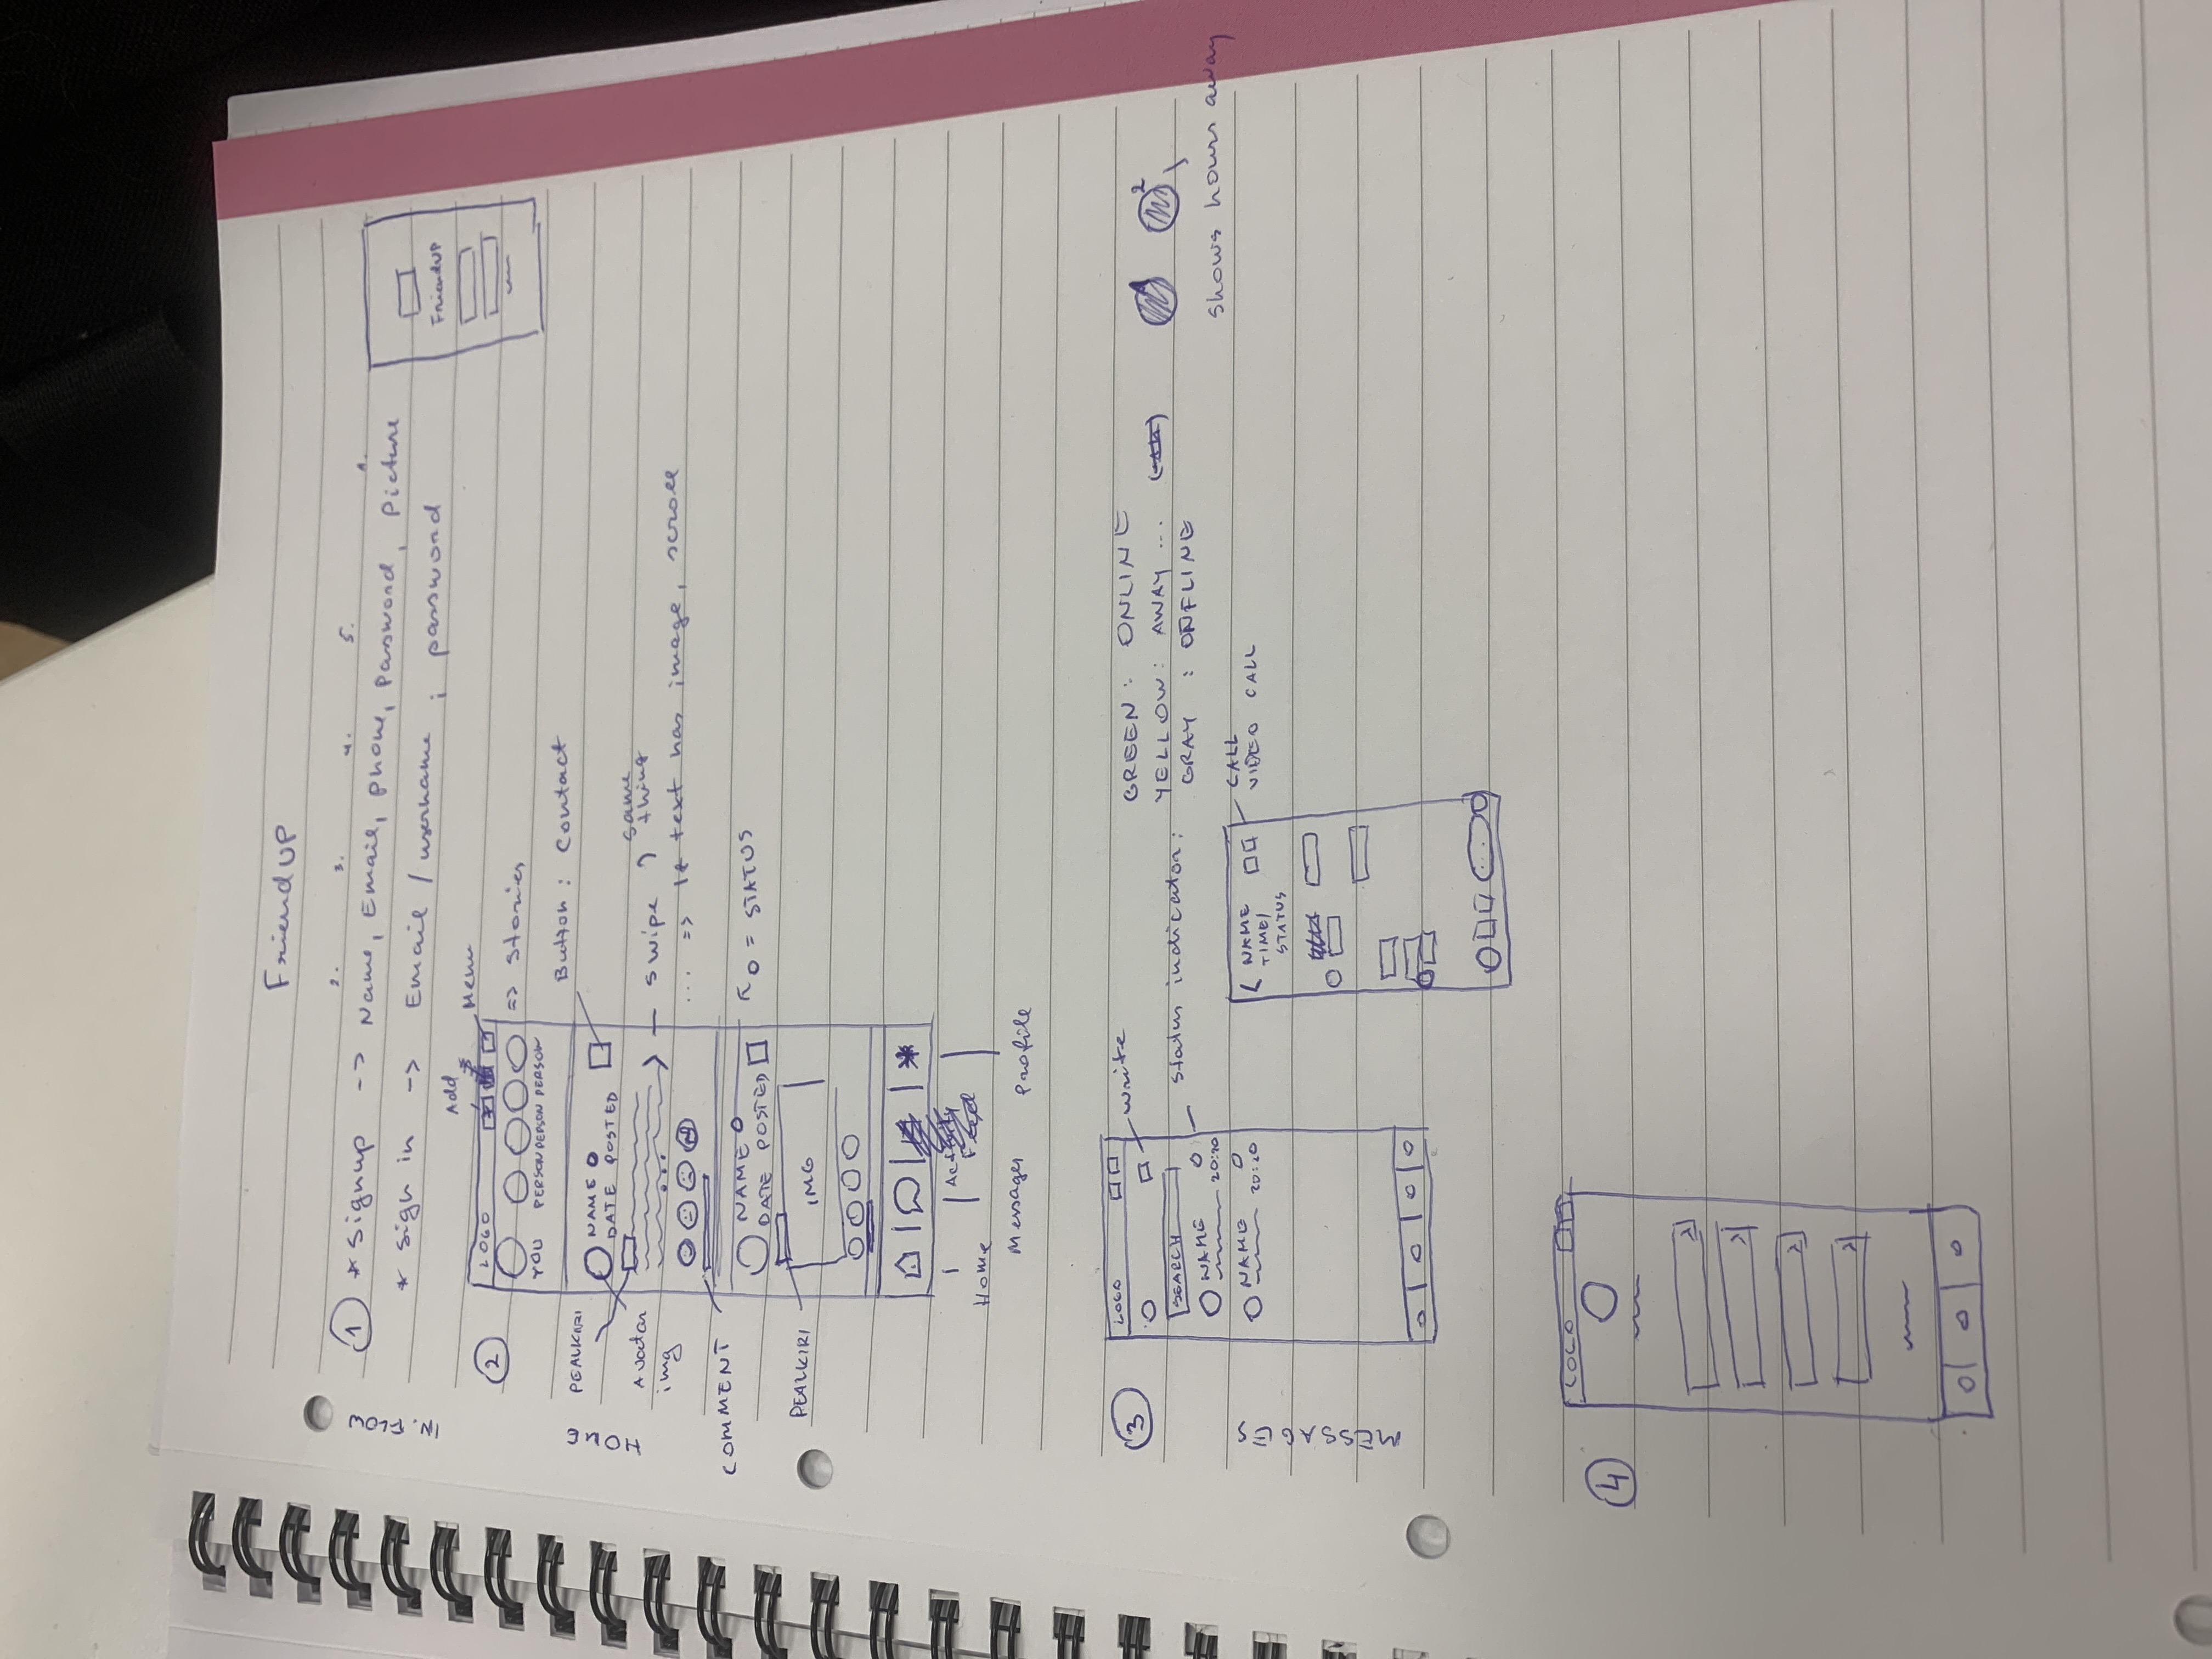 FriendUP
IN. FLOW
2. 3. 4. 5. 1.
1 * Signup -> Name, Email, phone, password, Picture
* sign in -> Email / username ; password
FriendUP
HOME
2
Add
Menu
LOGO
YOU PERSON PERSON PERSON
=> Stories
Button : Contact
PEALKIRI
NAME
DATE POSTED
Avatar
img
swipe
same
thing
... => If text has image, scroll
COMMENT
NAME
DATE POSTED
= STATUS
PEALKIRI
IMG
Activity
Feed
Home
Messages
Profile
MESSAGES
3
LOGO
write
SEARCH
NAME
20:20
NAME
20:20
Status indicator:
GREEN: ONLINE
YELLOW: AWAY ...
GRAY : OFFLINE
2
shows hours away
< NAME
TIME/
STATUS
CALL
VIDEO CALL
...
4
LOGO